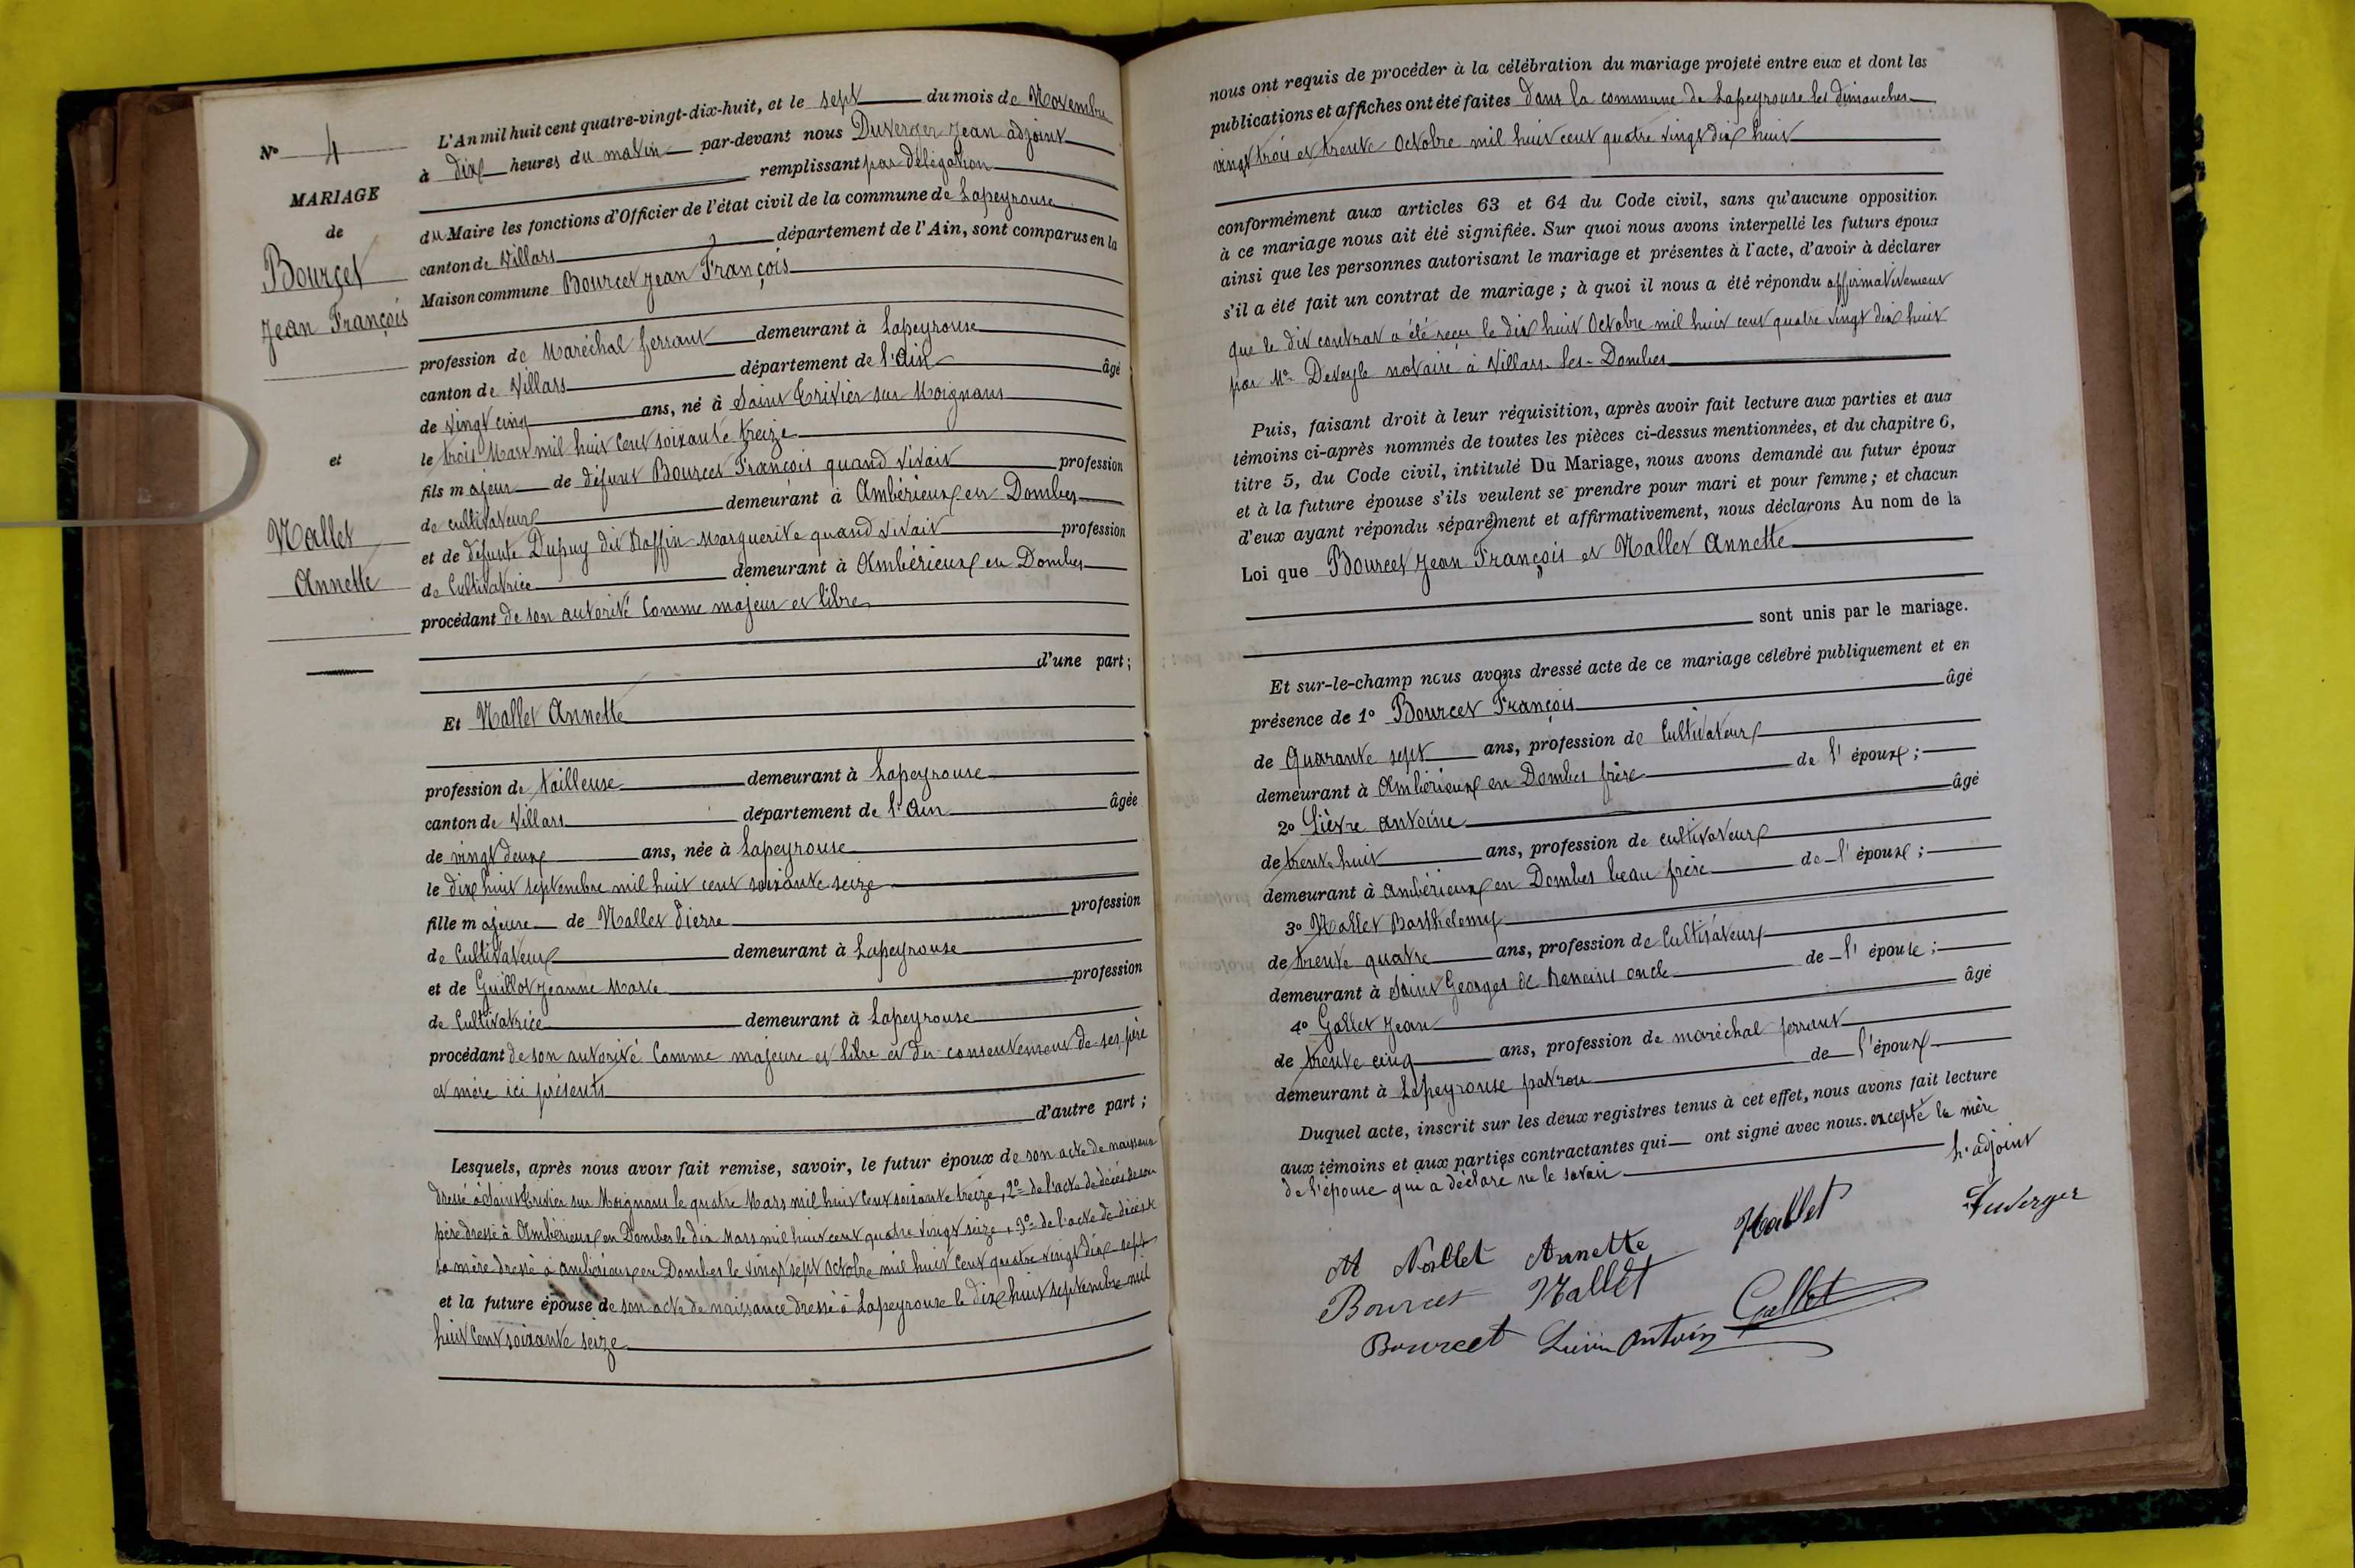 L'An mil huit cent quatre-vingt-dix-huit, et le sept du mois de Novembre
à dix heures du matin par-devant nous Duverger Jean adjoint
remplissant par délégation
du Maire les fonctions d'Officier de l'état civil de la commune de Lapeyrouse
canton de Villars département de l'Ain, sont comparus en la
Maison commune Bourcet Jean François
profession de Maréchal ferrant demeurant à Lapeyrouse
canton de Villars département de l'Ain âgé
de vingt cinq ans, né à Saint Trivier sur Moignans
le trois Mars mil huit cent soixante treize
fils majeur de défunt Bourcet François quand vivait profession
de cultivateur demeurant à Ambérieux en Dombes
et de défunte Dupuy dit Raffin Marguerite quand vivait profession
de Cultivatrice demeurant à Ambérieux en Dombes
procédant de son autorité Comme majeur et libre
d'une part ;
Et Nallet Annette
profession de tailleuse demeurant à Lapeyrouse
canton de Villars département de l'Ain âgée
de vingt deux ans, née à Lapeyrouse
le dix huit septembre mil huit cent soixante seize
fille majeure de Nallet Pierre profession
de Cultivateur demeurant à Lapeyrouse
et de Guillot Jeanne Marie profession
de Cultivatrice demeurant à Lapeyrouse
procédant de son autorité Comme majeure et libre et du consentement de ses père
et mère ici présents
d'autre part ;
Lesquels, après nous avoir fait remise, savoir, le futur époux de son acte de naissance
dressé à Saint Trivier sur Moignans le quatre Mars mil huit cent soixante treize, 2º de l'acte de décès de son
père dressé à Ambérieux en Dombes le dix Mars mil huit cent quatre vingt seize, 3º de l'acte de décès de
sa mère dressé à Ambérieux en Dombes le vingt sept octobre mil huit cent quatre vingt dix-sept
et la future épouse de son acte de naissance dressé à Lapeyrouse le dix huit septembre mil
huit cent soixante seize
Nº 4
MARIAGE
de
Bourcet
Jean François
et
Nallet
Annette
nous ont requis de procéder à la célébration du mariage projeté entre eux et dont les
publications et affiches ont été faites dans la commune de Lapeyrouse les dimanches
vingt trois et trente Octobre mil huit cent quatre vingt dix huit
conformément aux articles 63 et 64 du Code civil, sans qu'aucune opposition
à ce mariage nous ait été signifiée. Sur quoi nous avons interpellé les futurs époux
ainsi que les personnes autorisant le mariage et présentes à l'acte, d'avoir à déclarer
s'il a été fait un contrat de mariage ; à quoi il nous a été répondu affirmativement
que le dit contrat a été reçu le dix huit Octobre mil huit cent quatre vingt dix huit
par Me Deveyle notaire à Villars-Les-Dombes
Puis, faisant droit à leur réquisition, après avoir fait lecture aux parties et aux
témoins ci-après nommés de toutes les pièces ci-dessus mentionnées, et du chapitre 6,
titre 5, du Code civil, intitulé Du Mariage, nous avons demandé au futur époux
et à la future épouse s'ils veulent se prendre pour mari et pour femme ; et chacun
d'eux ayant répondu séparément et affirmativement, nous déclarons Au nom de la
Loi que Bourcet Jean François et Nallet Annette
sont unis par le mariage.
Et sur-le-champ nous avons dressé acte de ce mariage célébré publiquement et en
présence de 1º Bourcet François âgé
de Quarante sept ans, profession de Cultivateur
demeurant à Ambérieux en Dombes frère de l'époux ;
2º Lièvre Antoine âgé
de trente huit ans, profession de cultivateur
demeurant à Ambérieux en Dombes beau frère de l'époux ;
3º Nallet Barthelemy
de trente quatre ans, profession de Cultivateur
demeurant à Saint Georges de Reneins oncle de l'épouse ;
4º Gallet Jean âgé
de trente cinq ans, profession de maréchal ferrant
demeurant à Lapeyrouse patron de l'époux
Duquel acte, inscrit sur les deux registres tenus à cet effet, nous avons fait lecture
aux témoins et aux parties contractantes qui ont signé avec nous. excepté la mère
de l'épouse qui a déclaré ne le savoir
L'adjoint
M Nallet Annette Nallet Duverger
Bourcet Nallet
Bourcet Antoin Gallet